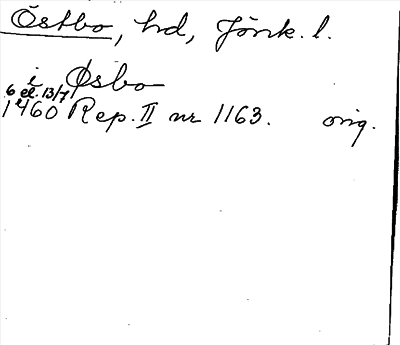 Östbo, hd, Jönk. l.
i Øsbo
6 el. 13/7
1460 Rep. II nr 1163. orig.